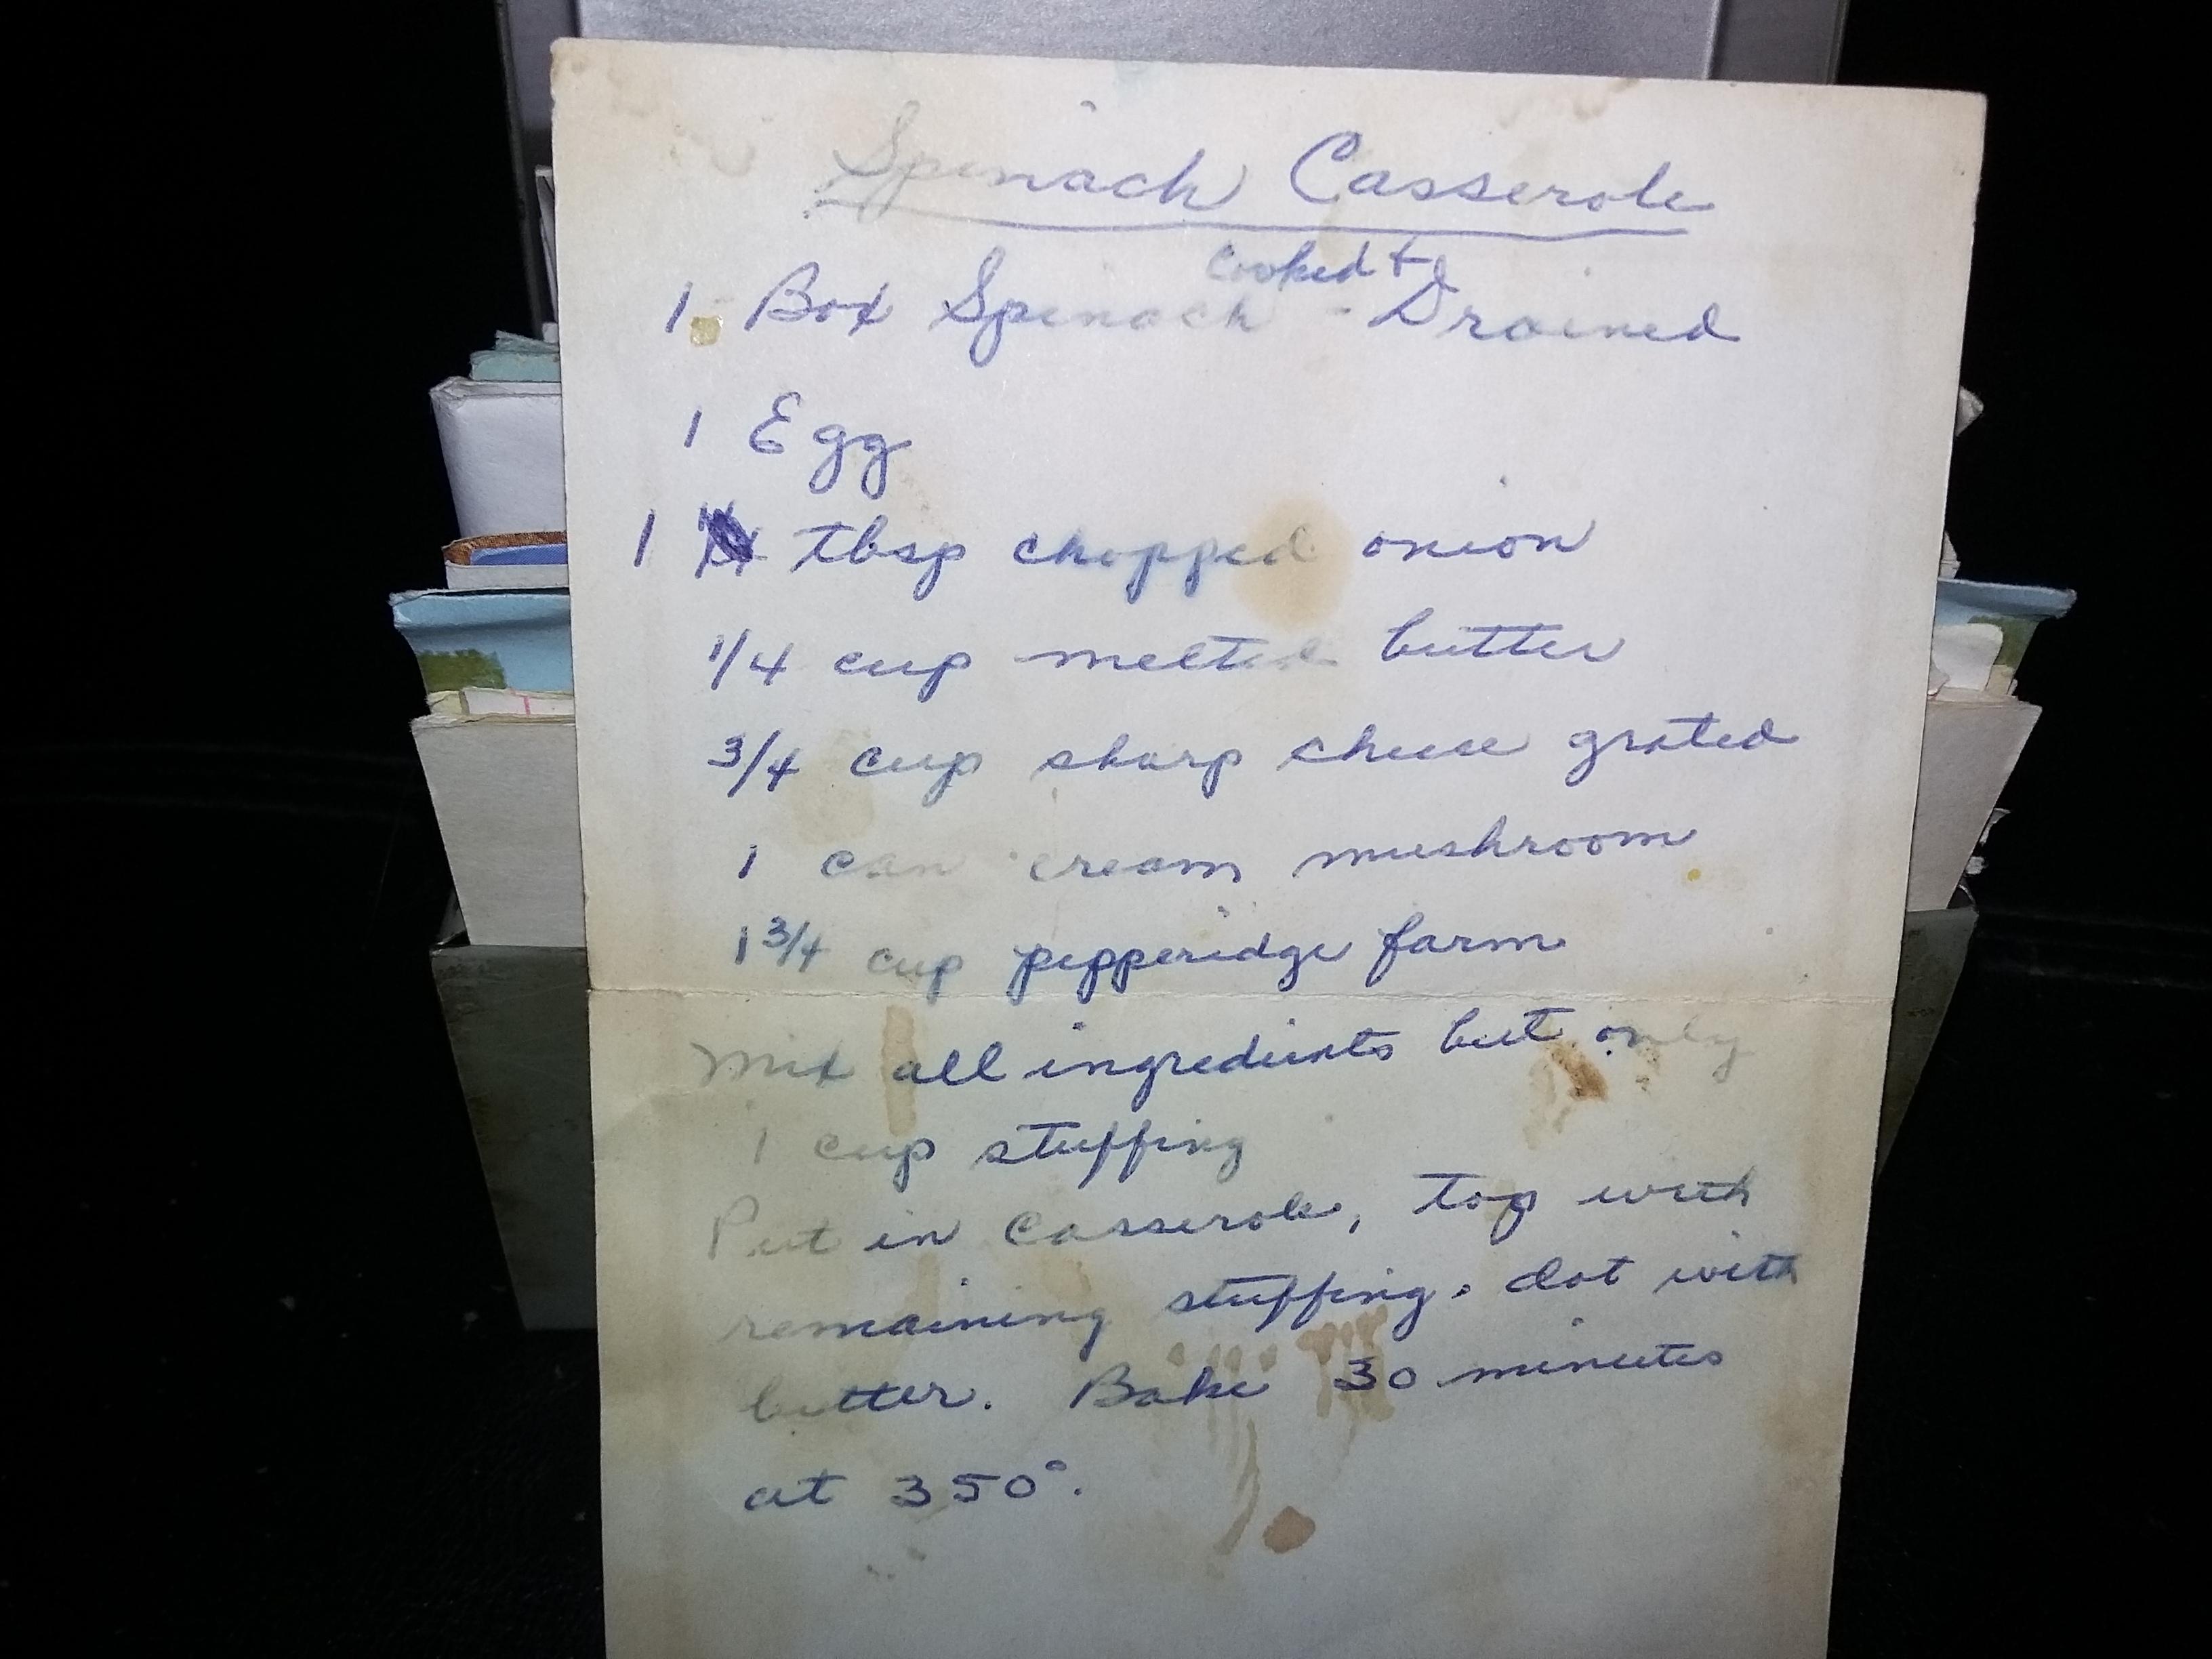 Spinach Casserole
cooked +
1 Box Spinach - Drained
1 Egg
1 tbsp chopped onion
1/4 cup melted butter
3/4 cup sharp cheese grated
1 can cream mushroom
1 3/4 cup pepperidge farm
Mix all ingredients but only
1 cup stuffing
Put in Casserole, top with
remaining stuffing. dot with
butter. Bake 30 minutes
at 350°.